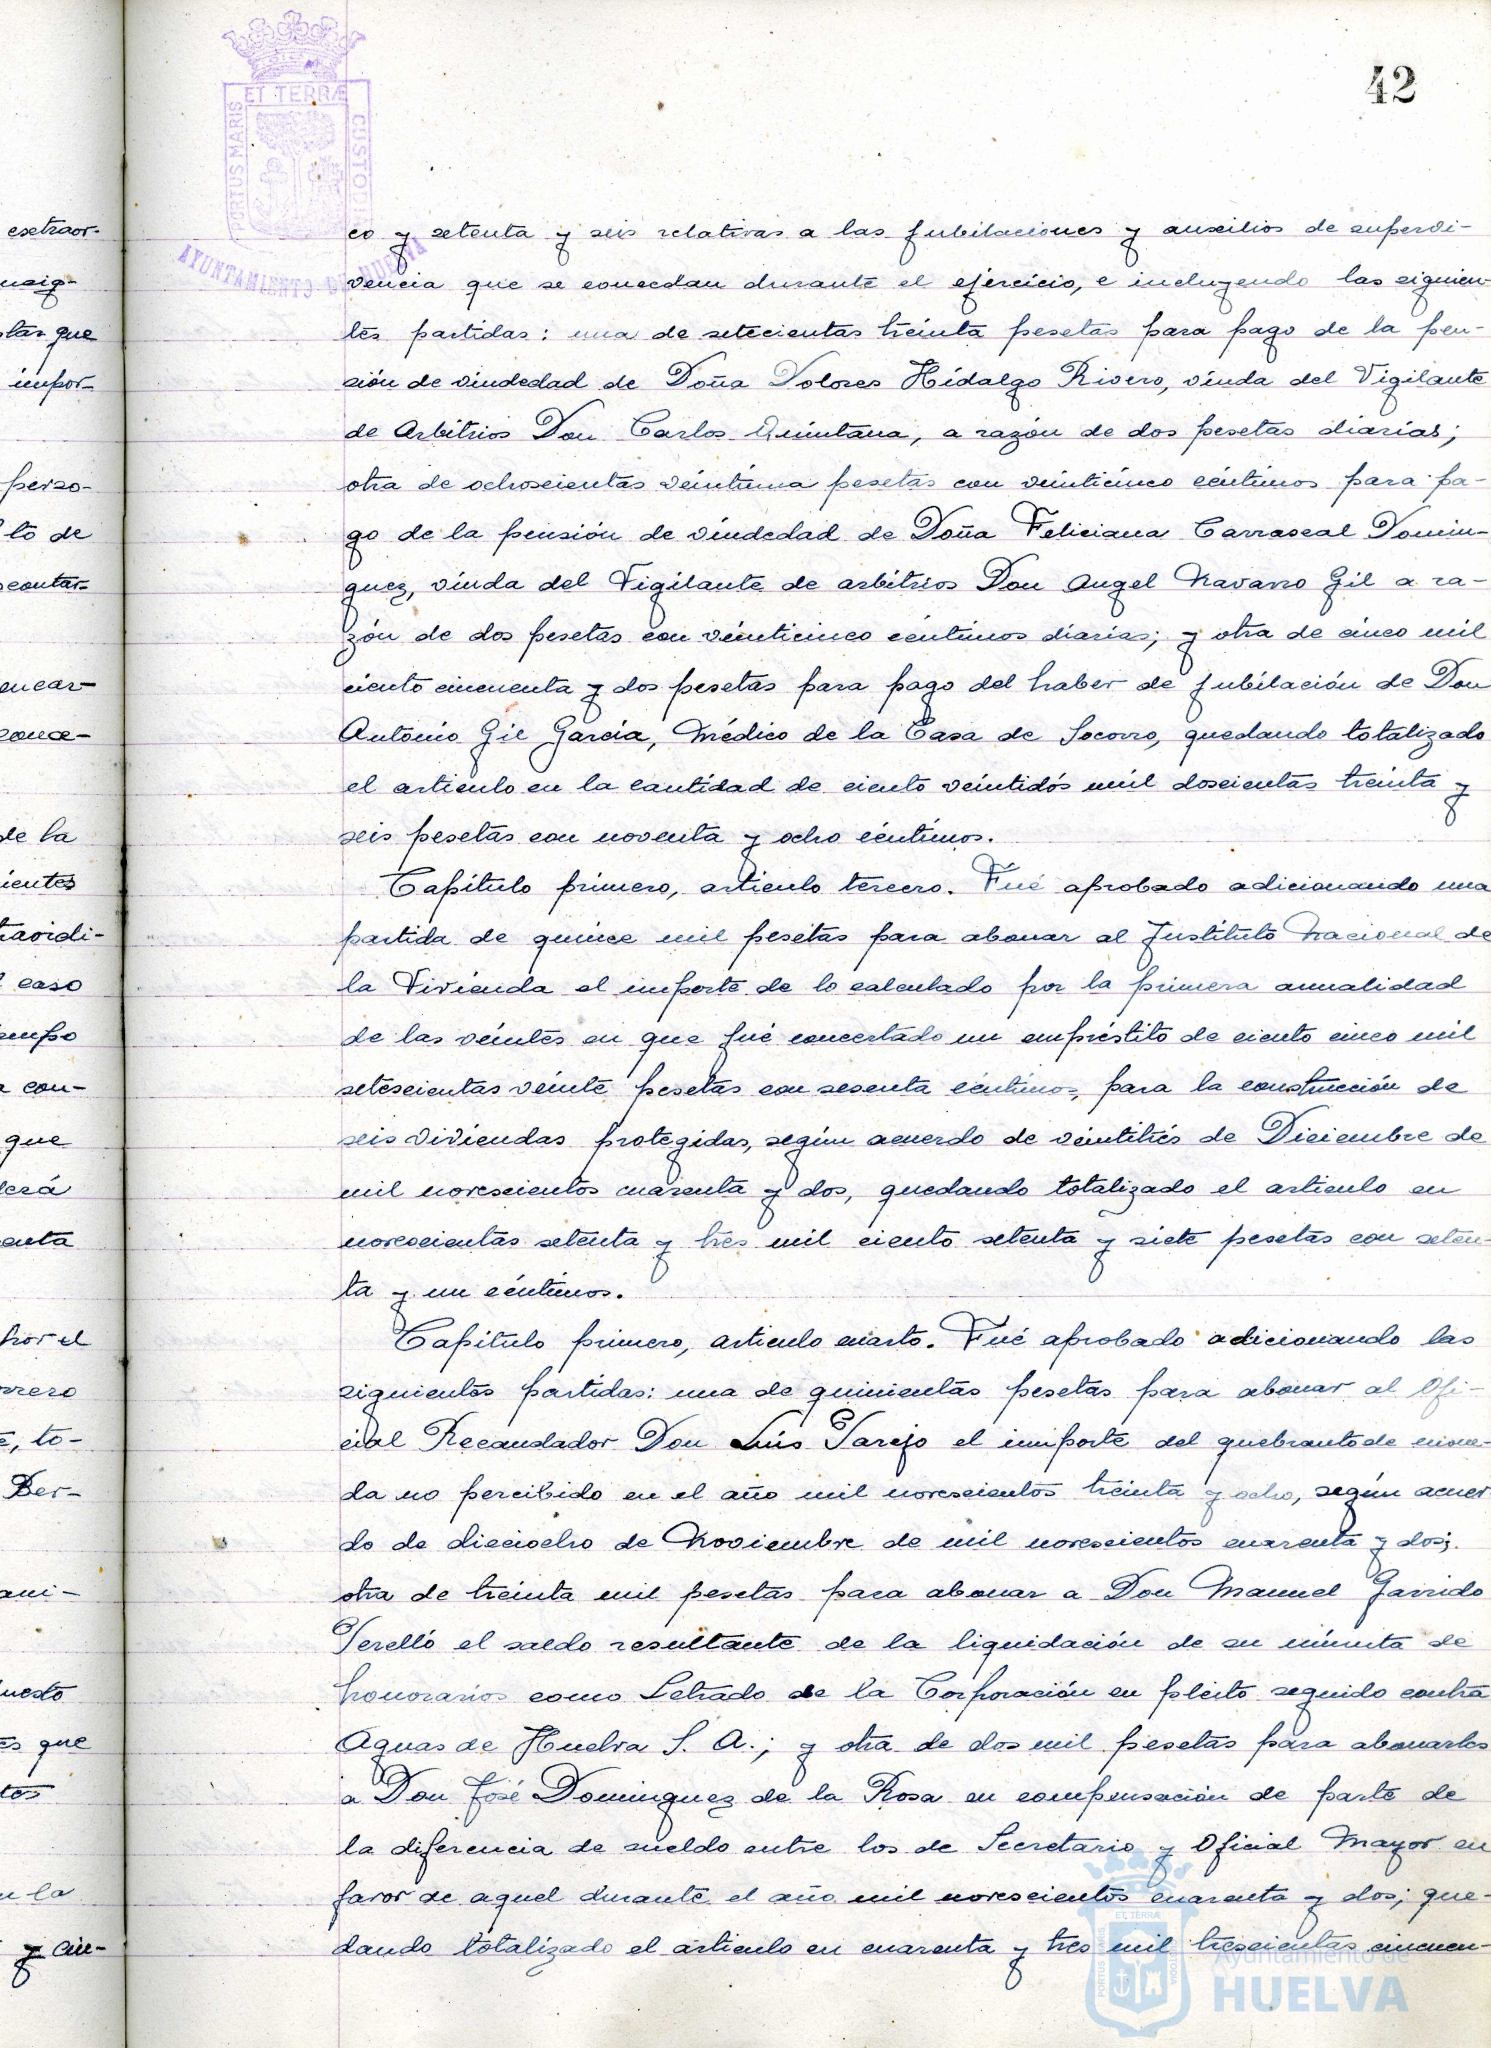 42
PORTUS MARIS ET TERRÆ CUSTODIA
AYUNTAMIENTO DE HUELVA
co y setenta y seis relativas a las jubilaciones y auxilios de supervi-
vencia que se concedan durante el ejercicio, e incluyendo las siguien-
tes partidas: una de setecientas treinta pesetas para pago de la pen-
sión de viudedad de Doña Dolores Hidalgo Rivero, viuda del Vigilante
de Arbitrios Don Carlos Quintana, a razón de dos pesetas diarias;
otra de ochoscientas veintiuna pesetas con veinticinco céntimos para pa-
go de la pensión de viudedad de Doña Feliciana Carrascal Domin-
guez, viuda del Vigilante de arbitrios Don Angel Navarro Gil a ra-
zón de dos pesetas con veinticinco céntimos diarias; y otra de cinco mil
ciento cincuenta y dos pesetas para pago del haber de jubilación de Don
Antonio Gil García, Médico de la Casa de Socorro, quedando totalizado
el articulo en la cantidad de ciento veintidós mil doscientas treinta y
seis pesetas con noventa y ocho céntimos.
Capítulo primero, articulo tercero. Fué aprobado adicionando una
partida de quince mil pesetas para abonar al Instituto Nacional de
la Vivienda el importe de lo calculado por la primera anualidad
de las veintes en que fué concertado un empréstito de ciento cinco mil
setescientas veinte pesetas con sesenta céntimos, para la construcción de
seis viviendas protegidas, según acuerdo de veintitrés de Diciembre de
mil novescientos cuarenta y dos, quedando totalizado el articulo en
novescientas setenta y tres mil ciento setenta y siete pesetas con seten-
ta y un céntimos.
Capítulo primero, articulo cuarto. Fué aprobado adicionando las
siguientes partidas: una de quinientas pesetas para abonar al Ofi-
cial Recaudador Don Luis Tarejo el importe del quebranto de mone-
da no percibido en el año mil novescientos treinta y ocho, según acuer-
do de dieciocho de Noviembre de mil novescientos cuarenta y dos;
otra de treinta mil pesetas para abonar a Don Manuel Garrido
Perelló el saldo resultante de la liquidación de su minuta de
honorarios como Letrado de la Corporación en pleito seguido contra
Aguas de Huelva S. A.; y otra de dos mil pesetas para abonarlas
a Don José Dominguez de la Rosa en compensación de parte de
la diferencia de sueldo entre los de Secretario y Oficial Mayor en
favor de aquel durante el año mil novescientos cuarenta y dos; que-
dando totalizado el articulo en cuarenta y tres mil trescientas cincuen-
Ayuntamiento de
HUELVA